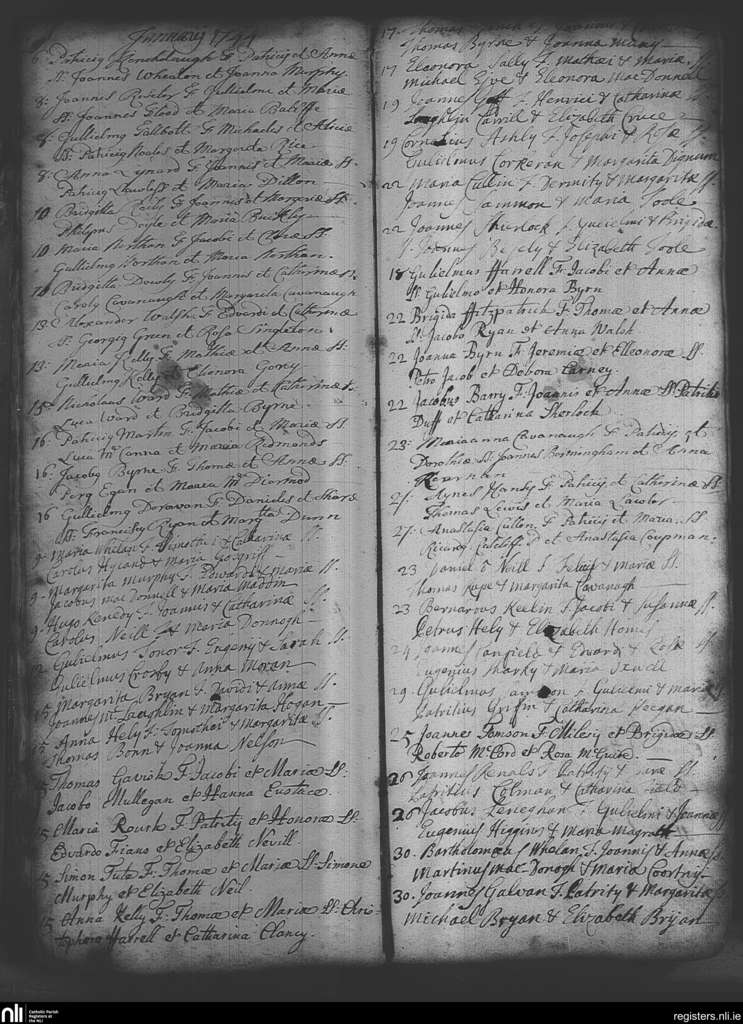 January 1794
6 Patricig F Patricij et Annæ
St. Joannes Whealon et Joanna Murphy
8: Joannes Roseler F Gulielmi et Mariæ
St. Joannes Flood et Maria
8: Gullielmg Talbott F Michaeles et Aliciæ
St. Patricig Noales et Margarda Rice
8: Anna Lynard F Joannis et Mariæ St.
Patricig Lawless et Maria Dillon
10 Bridgitta Reily F Joannis et Margeriæ St.
Philipus Doyle et Maria Buckley
10 Maria Northan F Jacobi et Claræ St.
Gullielmg Northan et Maria Northan
10 Bridgitta Dowly F Joannes et Catherinæ St
Caroly Cavanaugh et Margarita Cavanaugh
13 Alexander Walsh F Edvardi et Catherinæ
St. Georgig Green et Rosa Singleton
13: Maria Kelly F Mathiæ et Annæ St.
Gullielmg Kelly et Elionora Gorey
15 Nicholaus Ward F Mathiæ et Catherinæ St
Luca Ward et Bridgitta Byrne
16: Patricig Martin F Jacobi et Mariæ St
Luca Mc Canna et Maria Redmonds
16: Jacoby Byrne F Thomæ et Annæ St:
Ferg Egan et Maria Mc Diermod
16 Gullielmg Doravan F Danieles et
St. Francisky Ryan et Margtta Dunn
9 Maria Whelan F Timothei & Catharinæ SS
Carolus Hyland & Maria Gosgriff
9 Margarita Murphy F Edwardi & Mariæ SS
Jacobus mac Donnell & Maria Madom
9 Hugo Kenedy F Joannis & Catharinæ SS
Carolus Neill & Maria Donnogh
12 Gulielmus Conor F Eugenij & Sarah SS
Gulielmus Crosby & Anna Moran
Margarita Bryan F Davidi & Annæ SS
Joannes Mc Laughlin & Margarita Hogan
15 Anna Hely F Timothei & Margaritæ SS
Thomas Bonn & Joanna Nelson
Thomas Gavish F Jacobi et Mariæ St:
Jacobo Mullegan et Hanna Eustice
15 Maria Rourk F Patrity et Honoræ St.
Edvardo Fians et Elizabeth Nevill
Simon Tute F. Thomæ et Mariæ St. Simone
Murphy et Elizabeth Neil
15 Anna Kelly F. Thomæ et Mariæ St. Chris-
tophoro Harrell et Catharina Clancy
17 Thomas F Joannis &
Thomas Byrne & Joanna Many
17 Eleonora Lally F Mathæi & Mariæ SS
Michael Eyve & Eleonora Mac Donnell
19 Joannes Goff F Henrici & Catharinæ SS
Loughlin Carril & Elizabeth Cruce
19 Cornelius Ashly F Josephi & Rosæ SS
Gulielmus Corkeran & Margarita Dignum
22 Maria Cullin F Dermity & Margaritæ SS
Joannes Cammon & Maria Toole
22 Joannes Shurlock F Gulielmi & Brigidæ
Joannes Bevely & Elizabeth Toole
18 Gulielmus Harrell F. Jacobi et Annæ
St. Gulielmo et Honora Byrn
22 Brigida Fitzpatrick F. Thomæ et Annæ
St. Jacobo Ryan et Anna Walsh
22 Joanna Byrn F. Jeremiæ et Elleonoræ SS.
Petro Jacob et Debora Carney
22 Jacobus Barry F. Joannis et Annæ St. Patritio
Duff et Catharina Sherlock
23: Mariaanna Cavanaugh F Patricij et
Dorotheæ St. Joannes Bormingham et Anna
Kearnan
25: Agnes Handy F Patricij et Catherinæ St
Thomas Lewis et Maria Lawler
27: Anastasia Cullen F Patricij et Maria SS
Ricardg Cutcliff et Anastasia Coupman
23 Daniel o Neill F Felicis & Mariæ SS
Thomas Kepe & Margarita Cavanagh
23 Bernardus Keelin F Jacobi & Susannæ SS
Petrus Hely & Elizabeth Homes
24 Joannes Canfield F Edwardi & Rosæ SS
Eugenius Sharky & Maria Jewell
29 Gulielmus F Gulielmi & Mariæ SS
Patritius Griffin & Catharina Keegan
25 Joannes Tomson F. Milery et Brigidæ St.
Roberto Mc Cord et Rosa Mc Guire
26 Joannes F Patrity & SS
Patritius Colman & Catharina
26 Jacobus Geneghan F Gulielmi & Joannæ SS
Eugenius Higgins & Maria Magrath
30. Bartholomæus Whelan F Joannis & Annæ SS
Martinus Mac-Donogh & Maria Coortny
30. Joannes Galvan F. Patrity & Margaritæ SS
Michael Bryan & Elizabeth Bryan
nli
Catholic Parish
Registers at
the NLI
registers.nli.ie